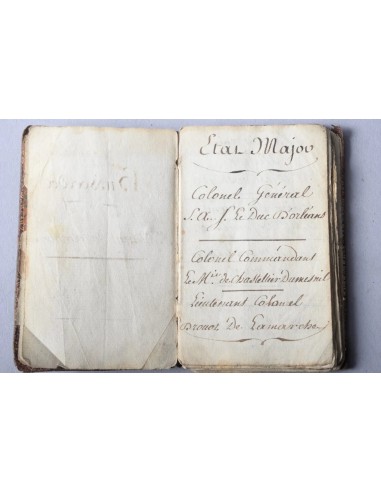 Etat Major
Colonel Général
S. A. S. Le Duc Dorléans
Colonel Commandant
Le M.is de Chastellier Dumesnil
Lieutenant Colonel
Drouot De Lamarche